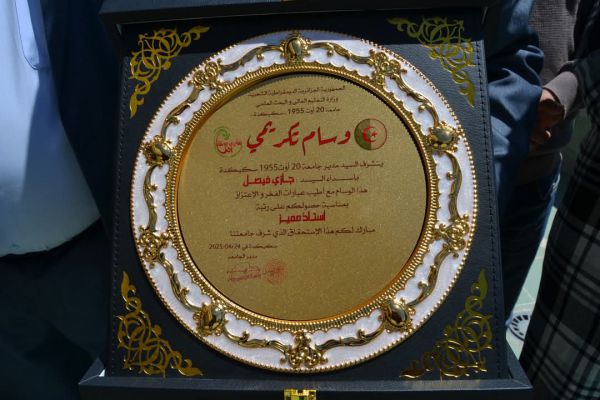 الجمهورية الجزائرية الديمقراطية الشعبية
وزارة التعليم العالي و البحث العلمي
جامعة 20 أوت 1955 سكيكدة
وسام تكريمي
يتشرف السيد مدير جامعة 20 أوت 1955 سكيكدة
بإسداء السيد : جازي فيصل
هذا الوسام مع أطيب عبارات الفخر و الإعتزاز
بمناسبة حصولكم على رتبة
أستاذ مميز
مبارك لكم هذا الاستحقاق الذي شرف جامعتنا
سكيكدة في 2025/04/24
مدير الجامعة